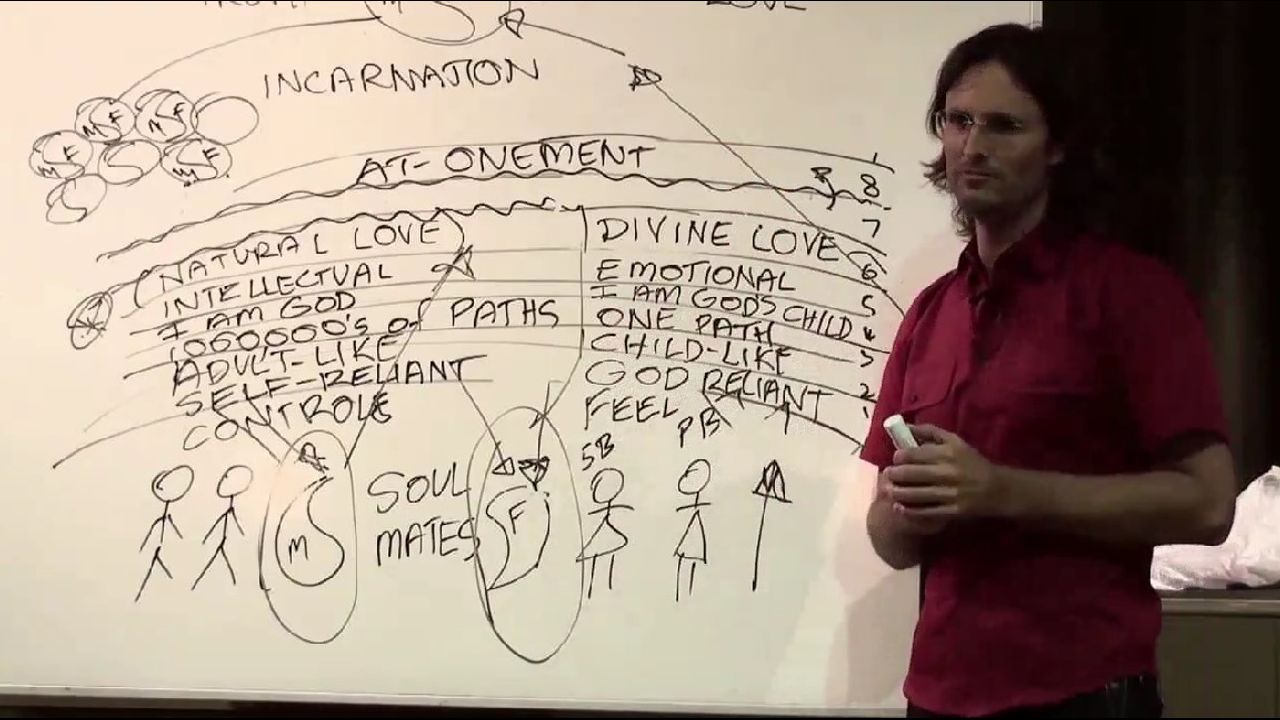 LOVE
M
INCARNATION
M F
M F
M F
M F
AT-ONEMENT
8
7
NATURAL LOVE
DIVINE LOVE
6
INTELLECTUAL
EMOTIONAL
5
I AM GOD
I AM GOD'S CHILD
4
1000000'S OF PATHS
ONE PATH
3
ADULT-LIKE
CHILD-LIKE
2
SELF-RELIANT
GOD RELIANT
1
CONTROL
FEEL
PB
SB
SOUL
MATES
M
F